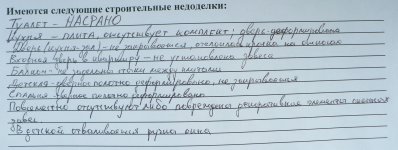 Имеются следующие строительные недоделки:
Туалет – НАСРАНО
Кухня – плита, отсутствует комплект; дверь деформирована
Дверь (кухня-зал) – не закрывается, отклеилась кромка на
Входная дверь в квартиру – не установлена
Балкон – не заделаны стыки между плитами
Детская – дверное полотно деформировано, не закрывается
Спальня – дверное полотно деформировано
Повсеместно отсутствуют либо повреждены декоративные элементы
В детской отваливается ручка окна.